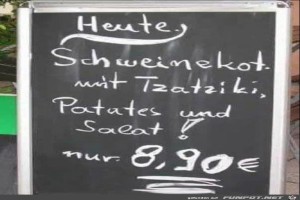 Heute.
Schweinekot.
mit Tzatziki,
Patates und
Salat!
nur 8,90€
FUNPOT.NET